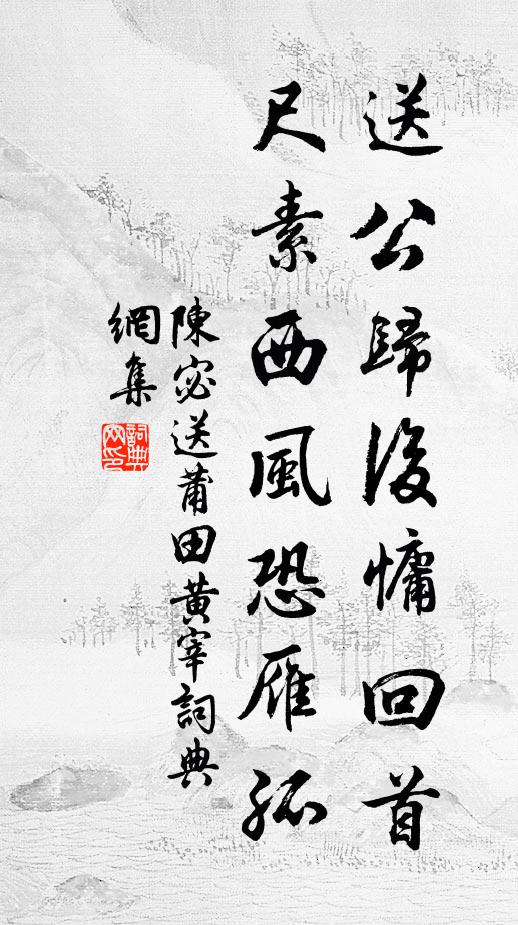 送公歸後慵回首
尺素西風恐雁孤
陳宓送莆田黃宰詞典
網集
詞典網印